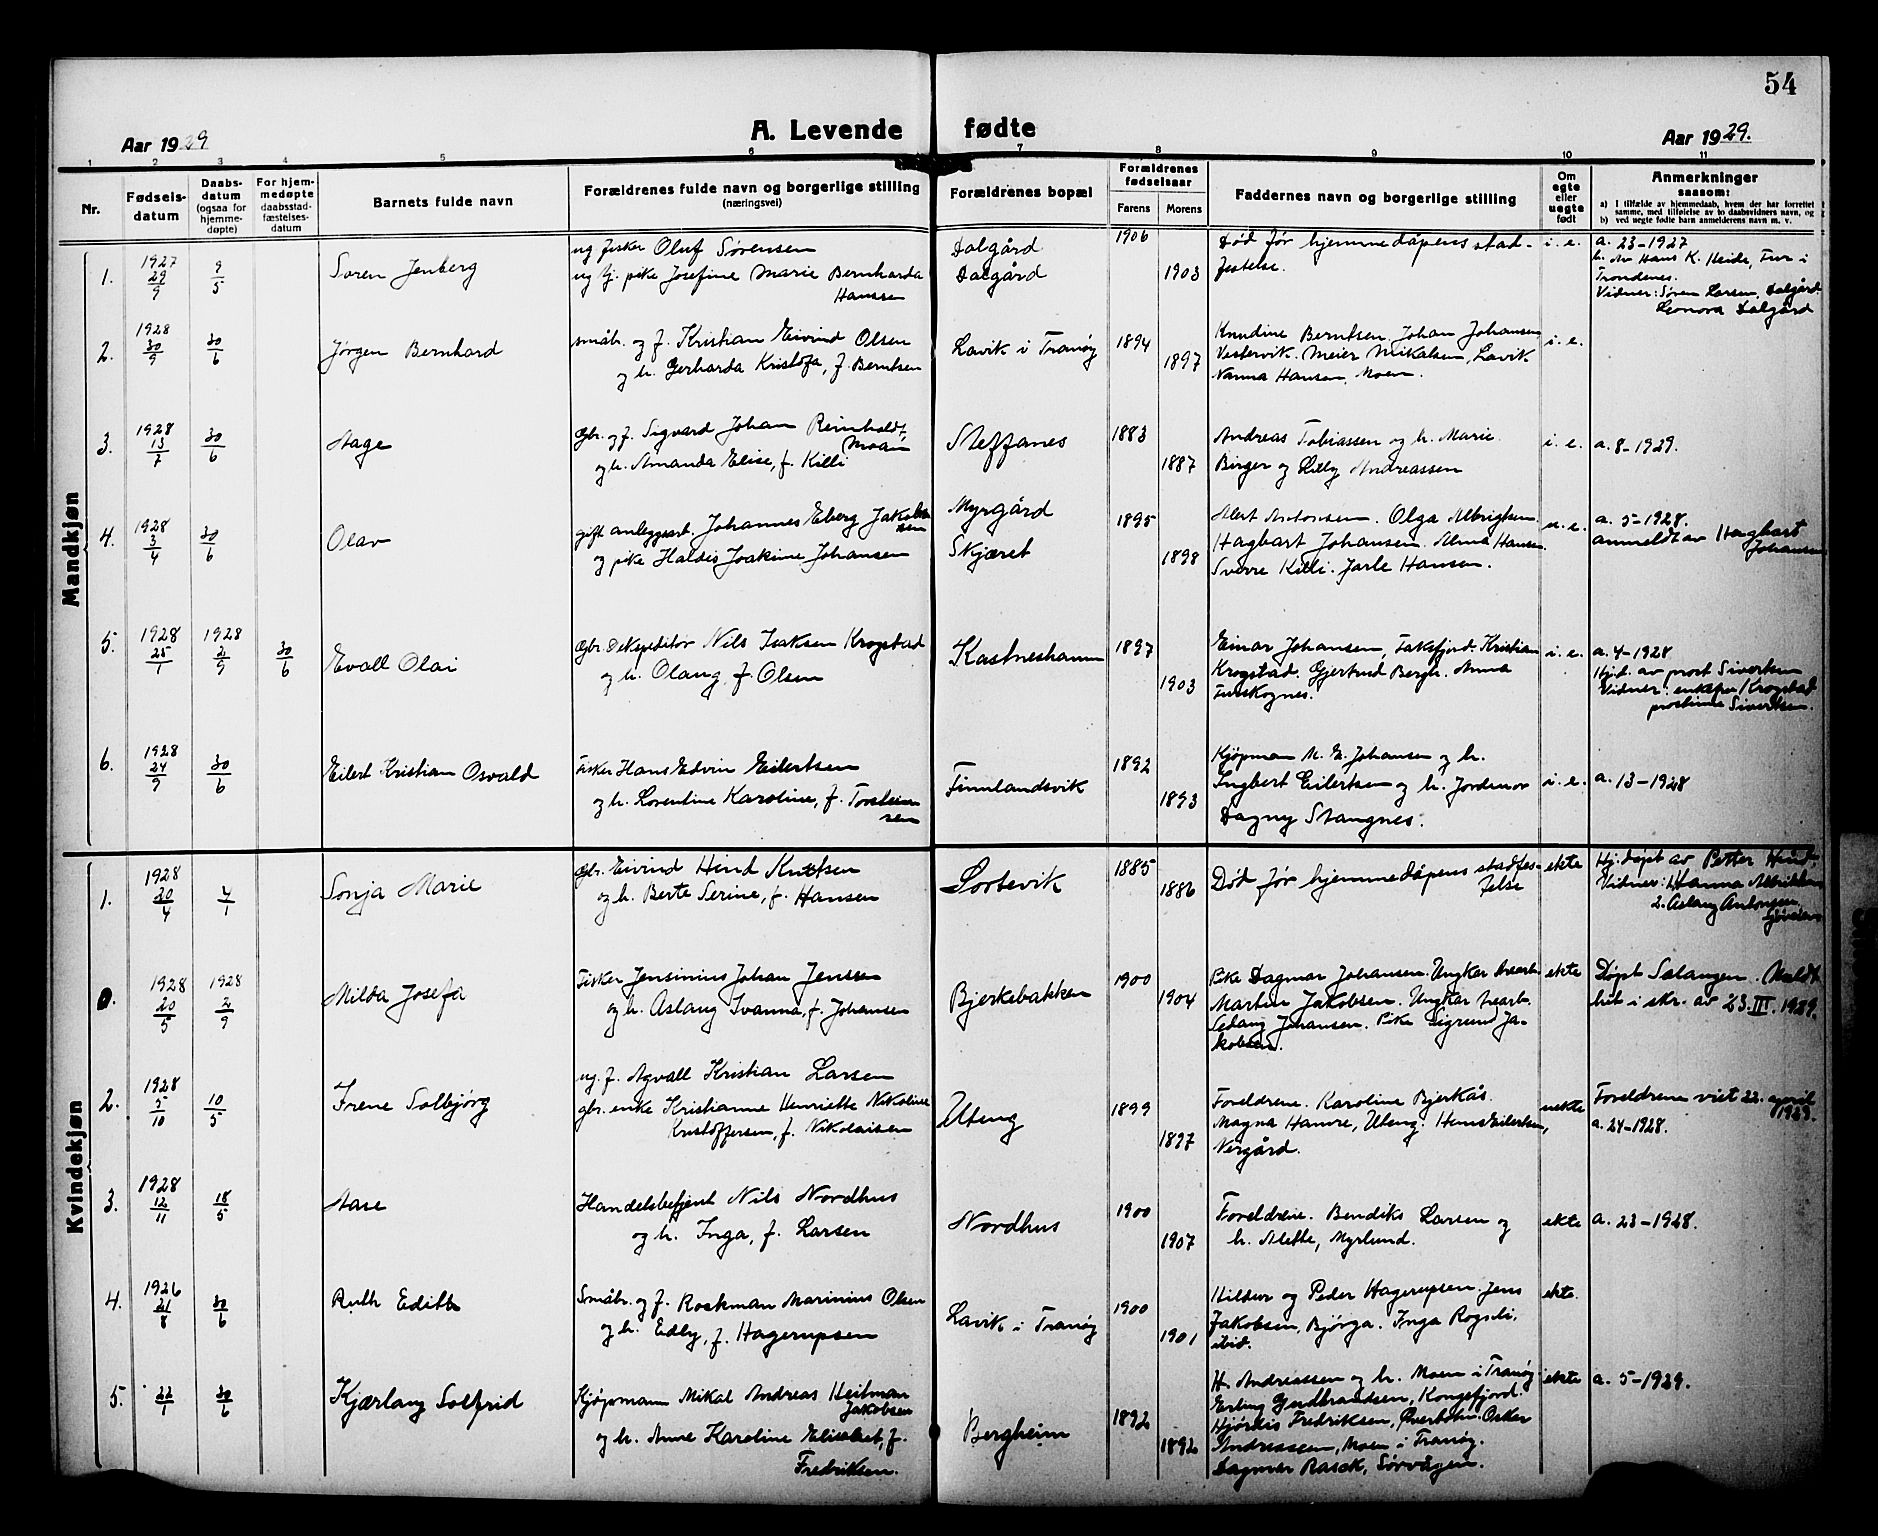 54
Aar 1929
A. Levende fødte
Aar 1929.
1 2 3 4 5 6 7 8 9 10 11
Nr.
Fødsels-
datum
Daabs-
datum
(ogsaa for
hjemme-
døpte)
For hjem-
medøpte
daabsstad-
fæstelses-
datum
Barnets fulde navn
Forældrenes fulde navn og borgerlige stilling
(næringsvei)
Forældrenes bopæl
Forældrenes
fødselsaar
Farens
Morens
Faddernes navn og borgerlige stilling
Om
egte
eller
uegte
født
Anmerkninger
saasom:
a) I tilfælde av hjemmedaab, hvem der har forrettet
samme, med tilføielse av to daabsvidners navn, og
b) ved uegte fødte barn anmelderens navn m. v.
Mandkjøn
1.
1927
29/9
9/5
Søren Jenberg
ug fisker Oluf Sørensen
ug tj. pike Josefine Marie Bernharda
Hanssen
Dalgård
Dalgård
1906
1903
Død før hjemmedåpens stad-
festelse.
i. e.
a. 23-1927
h. av Hans K. Heide, Fur i
Trondenes.
Vidner: Søren Larsen, Dalgård
Leonora Dalgård
2.
1928
30/9
30/6
Jørgen Bernhard
småbr. og f. Kristian Eivind Olsen
og h. Gerharda Kristofa, f. Berntsen
Lavik i Tranøy
1894
1897
Knudine Berntsen, Johan Johansen
Vestervik. Meier Mikalsen, Lavik
Nanna Hansen, Moen.
i. e.
3.
1928
13/7
30/6
Aage
Gbr. og f. Sigvard Johan Reinholdt
Moan
og h. Amanda Elise, f. Killi
Steffanes
1883
1887
Andreas Tobiassen og h. Marie.
Birger og Lilly Andreassen
i. e.
a. 8-1929.
4.
1928
3/4
30/6
Olav
gift anleggsarb. Johannes Eberg Jakob-
sen
og pike Haldis Joakime Johansen
Myrgård
Skjæret
1895
1898
Alert Antonsen. Olga Albrigtsen.
Hagbart Johansen. Alma Hansen.
Sverre Killi. Jarle Hansen.
u. e.
a. 5-1928.
anmeldt av Hagbart
Johansen
5.
1928
25/1
1928
2/9
30/6
Evall Olai
Gbr. Dekspeditør Nils Isaksen Krogstad
og h. Olaug, f. Olsen
Kastneshamn
1897
1903
Einar Johansen, Faksfjord. Kristian
Krogstad. Gjertrud Bergh. Anna
Furskognes.
i. e.
a. 4-1928
Hj.d. av prost Sivertsen
Vidner: Krogstad
prostinne Sivertsen.
6.
1928
24/9
30/6
Eilert Kristian Osvald
Fisker Hans Edvin Eilertsen
og h. Lorentine Karoline, f. Torstein-
sen
Finnlandsvik
1892
1893
Kjøpman M. E. Johansen og h.
Ingbert Eilertsen og h. Jordmor
Dagny Stangnes.
i. e.
a. 13-1928
Kvindekjøn
1.
1928
20/4
4/1
Sonja Marie
Gbr. Eivind Hind Knutsen
og h. Berte Serine, f. Hansen
Sortevik
1885
1886
Død før hjemmedåpens stadfes-
telse
ekte
Hj.døpt av Petter Hind
Vidner: 1. Hanna Albriktsen
2. Aslaug Antonsen
0.
1928
20/5
1928
2/9
Milda Josefa
Fisker Jensinius Johan Jenssen
og h. Aslaug Ivanna, f. Johansen
Bjerkebakken
1900
1904
Pike Dagmar Johansen. Ungkar
Martin Jakobsen. Ungkar
Johansen. Pike Sigrund Ja-
kobsen.
ekte
Døpt Salangen. Meldt
hit i skr. av 23.III.1929.
2.
1928
5/10
10/5
Irene Solbjørg
ug. f. Agvall Kristian Larsen
gbr. enke Kristianne Henriette Nikoline
Kristoffersen, f. Nikolaisen
Uteng
1899
1897
Foreldrene. Karoline Bjerkås.
Magna Hamre, Uteng. Hans Eilertsen,
Vergård.
uekte
Foreldrene viet 22. april
1929.
a. 24-1928.
3.
1928
12/11
18/5
Aase
Handelsbetjent Nils Nordhus
og h. Inga, f. Larsen
Nordhus
1900
1907
Foreldrene. Bendiks Larsen og
h. Alette, Myrlund.
ekte
a. 23-1928.
4.
1926
21/8
30/6
Ruth Edith
Småbr. og f. Rockman Marinius Olsen
og h. Edly, f. Hagerupsen
Lavik i Tranøy
1900
1901
Hildur og Peder Hagerupsen. Jens
Jakobsen, Bjørga. Inga Rogsli,
ibid.
ekte.
5.
22/1
30/6
Kjærlaug Solfrid
Kjøpmann Mikal Andreas Heitman
Jakobsen
og h. Anne Karoline Elisabet, f.
Fredriksen.
Bergheim
1892
1892
H. Andreassen og h. Moen i Tranøy
Erling Gudbrandsen, Kongsfjord.
Hjørdis Fredriksen, Øverbotn. Oskar
Andreassen, Moen i Tranøy.
Dagmar Rasck, Sørvågen.
ekte
a. 5-1929.